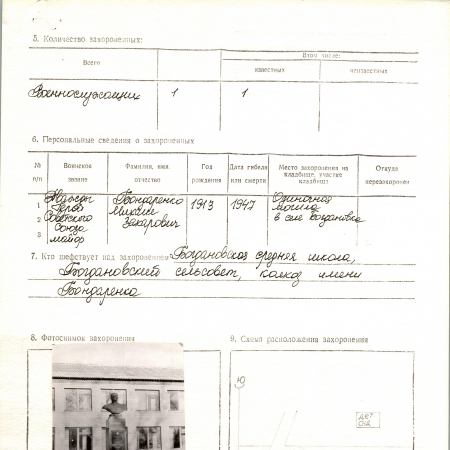 5. Количество захороненных:
Всего
В том числе:
известных
неизвестных
Военнослужащих 1 1
6. Персональные сведения о захороненных
№ п/п
Воинское звание
Фамилия, имя, отчество
Год рождения
Дата гибели или смерти
Место захоронения на кладбище, участке кладбища
Откуда перезахоронен
1
2
3
Герой
Советского
Союза
майор
Бондаренко
Михаил
Захарович
1913
1947
Одиночная
могила
в селе Богдановка
7. Кто шефствует над захоронением Богдановская средняя школа,
Богдановский сельсовет, колхоз имени
Бондаренка
8. Фотоснимок захоронения
9. Схема расположения захоронения
Ю
дет
сад